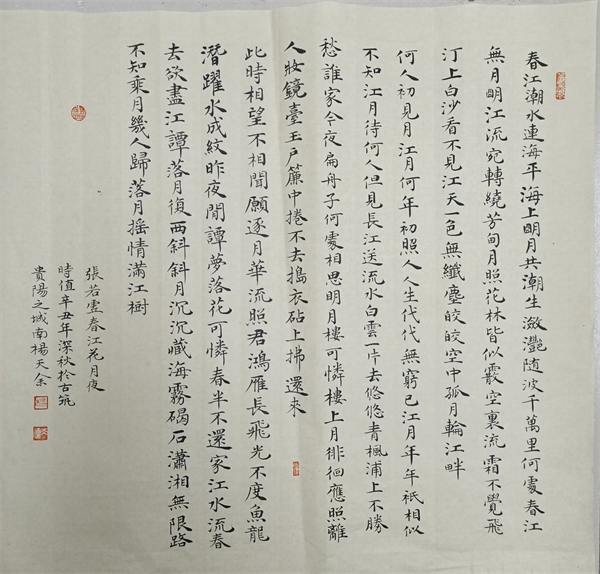 春江潮水連海平海上明月共潮生瀲灧随波千萬里何處春江
無月明江流宛轉繞芳甸月照花林皆似霰空裏流霜不覺飛
汀上白沙看不見江天一色無纖塵皎皎空中孤月輪江畔
何人初見月江月何年初照人人生代代無窮已江月年年祇相似
不知江月待何人但見長江送流水白雲一片去悠悠青楓浦上不勝
愁誰家今夜扁舟子何處相思明月樓可憐樓上月徘徊應照離
人妝鏡臺玉户簾中捲不去搗衣砧上拂還來
此時相望不相聞願逐月華流照君鴻雁長飛光不度魚龍
潛躍水成紋昨夜閒譚夢落花可憐春半不還家江水流春
去欲盡江譚落月復西斜斜月沉沉藏海霧碣石瀟湘無限路
不知乘月幾人歸落月摇情滿江樹
張若虚春江花月夜
時值辛丑年深秋於古筑
貴陽之城南楊天余